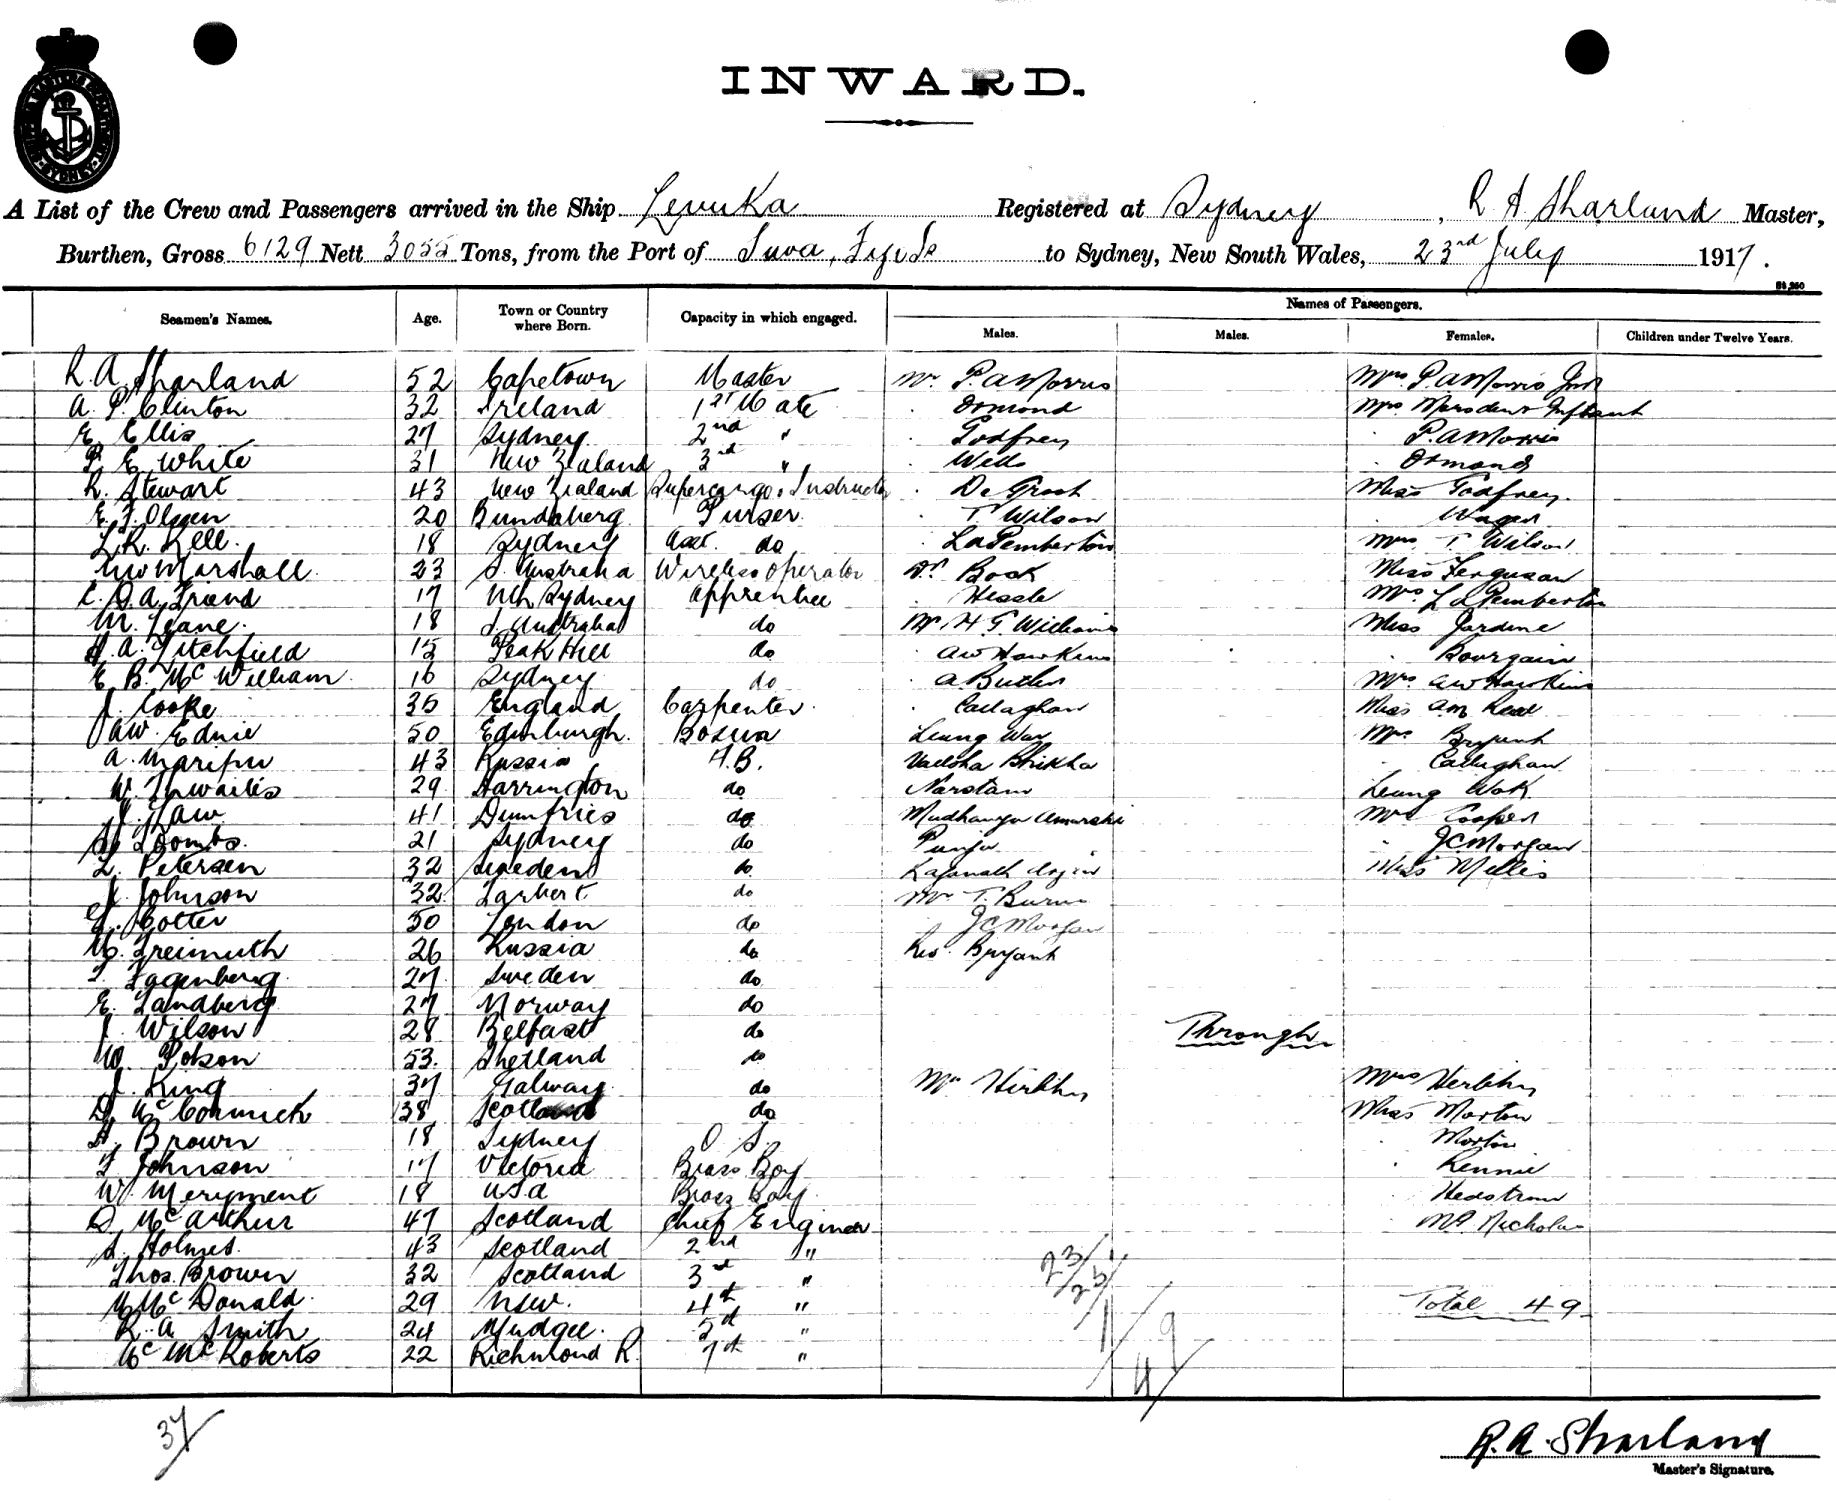 INWARD.
A List of the Crew and Passengers arrived in the Ship Levuka Registered at Sydney, R A Sharland Master,
Burthen, Gross 6129 Nett 3055 Tons, from the Port of Suva, to Sydney, New South Wales, 23rd July 1917.
Names of Passengers.
Seamen's Names. Age. Town or Country where Born. Capacity in which engaged. Males. Males. Females. Children under Twelve Years.
R. A. Sharland 52 Capetown Master Mr P. A Morris Mrs P A Morris
A. P. Clinton 32 Ireland 1st Mate Ormond Mrs Marsden & Infant
E. Ellis 27 Sydney 2nd " Godfrey P. A Morris
P. E. White 31 New Zealand 3rd " Wells Ormond
R. Stewart 43 New Zealand Supercargo & Instructor De Groot Miss Godfrey
E. F. Olssen 20 Bundaberg Purser T. Wilson Wager
L. R. Kell. 18 Sydney Asst. do L A Pemberton Mrs T Wilson
Marshall. 23 S. Australia Wireless operator Dr Book Miss Ferguson
17 Nth Sydney Apprentice Hessle Mrs L A Pemberton
M. Leane. 18 S. Australia do Mr H G. Williams Miss Jardine
A. Litchfield 15 Peak Hill do A W Hawkins Bourgain
E. B. McWilliam 16 Sydney do A. Butler Mrs A W Hawkins
J. Cooke 35 England Carpenter Callaghan Miss A M Read
A W. Ednie 50 Edinburgh. Bosun Leung War Mrs Bryant
A. 43 Russia A.B. Bhikha Callaghan
W. Thwaites 29 Harrington do Narstam Leung Wok
J. Law 41 Dumfries do Mrs Cooper
Coombs. 21 Sydney do Punja J C Morgan
L. Petersen 32 Sweden do Miss Millis
J. Johnson 32 Tarbert do Mr T. Burns
Cotter 50 London do J C Morgan
Freimuth 26 Russia do Rev. Bryant
Fagenberg 27 Sweden do
E. Landberg 27 Norway do
J. Wilson 28 Belfast do Through
W. Polson 53. Shetland do
J. King 37 Galway do Mr Mrs
D. McCormick 38 Scotland do Miss Morton
A. Brown 18 Sydney O. S. Morton
F Johnson 17 Victoria Brass Boy Rennie
W. Meryment 18 USA Brass Boy Hedstrom
D. McArthur 47 Scotland Chief Engineer McNicholas
S. Holmes. 43 Scotland 2nd "
Thos. Brown 32 Scotland 3rd "
McDonald. 29 NSW. 4th " Total 49
R. A Smith 24 Mudgee. 5th "
McRoberts 22 Richmond R. 7th "
23/
25/
1/
49
37/
R. A. Sharland
Master's Signature.